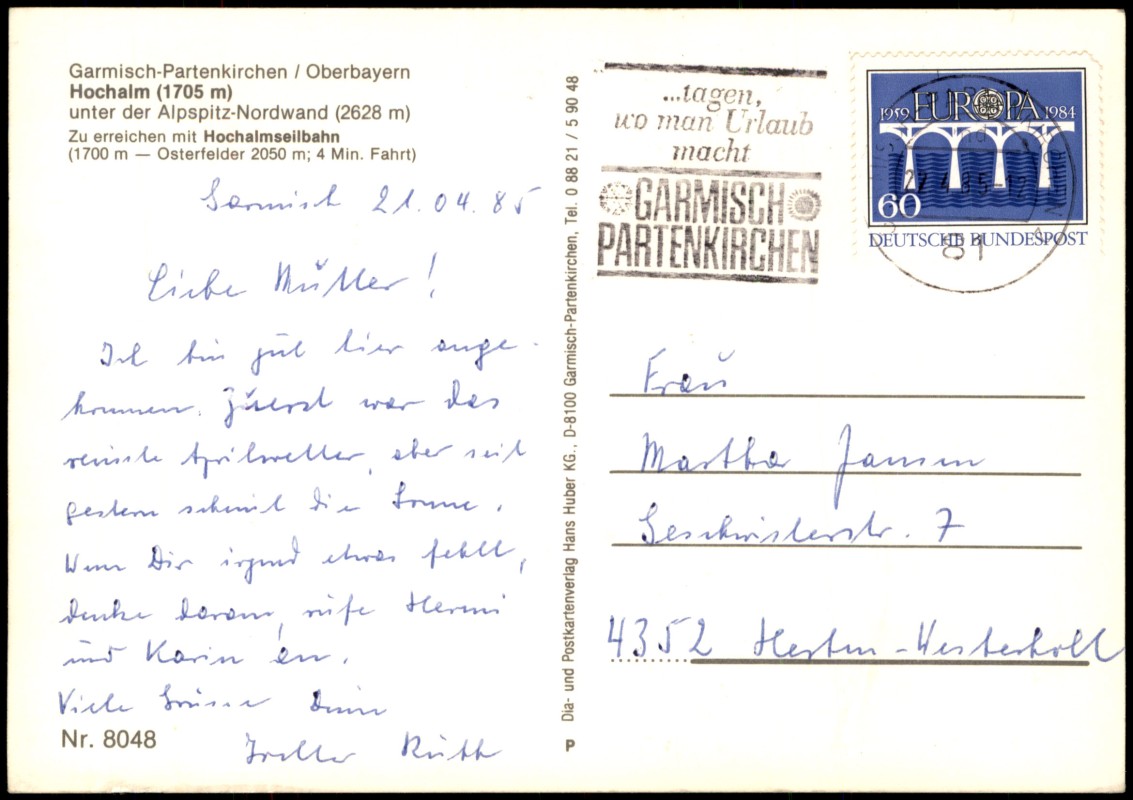 Garmisch-Partenkirchen / Oberbayern
Hochalm (1705 m)
unter der Alpspitz-Nordwand (2628 m)
Zu erreichen mit Hochalmseilbahn
(1700 m — Osterfelder 2050 m; 4 Min. Fahrt)
Garmisch 21.04.85
Liebe Mutter!
Ich bin gut hier ange-
kommen. Zuerst war das
reinste Aprilwetter, aber seit
gestern scheint die Sonne.
Wenn Dir irgend etwas fehlt,
denke daran, rufe Hermi
und Karin an.
Viele Grüsse Deine
Ruth
Nr. 8048
Dia- und Postkartenverlag Hans Huber KG., D-8100 Garmisch-Partenkirchen, Tel. 0 88 21 / 5 90 48
P
...tagen,
wo man Urlaub
macht
GARMISCH
PARTENKIRCHEN
1959 EUROPA 1984
60
DEUTSCHE BUNDESPOST
22.4.85-12
Frau
Martha Jansen
Geschwisterstr. 7
4352 Herten-Westerholt